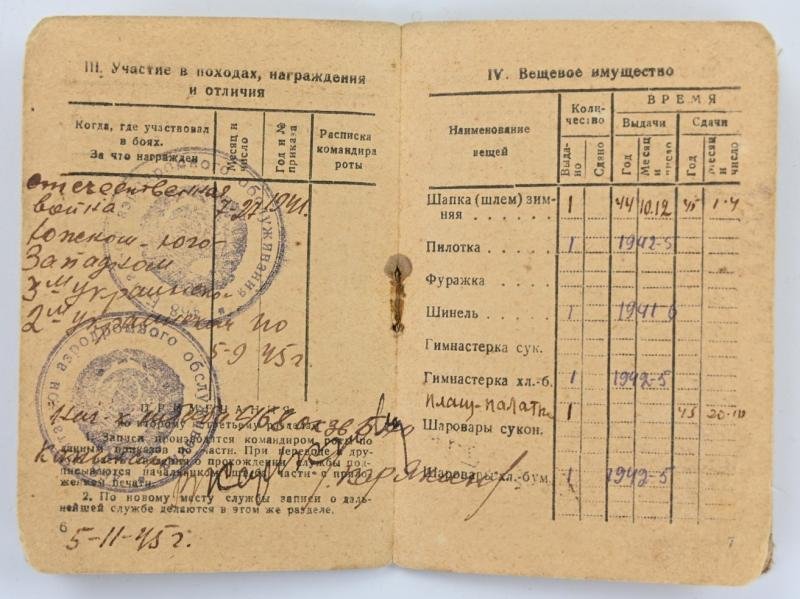 III. Участие в походах, награждения
и отличия
Когда, где участвовал
в боях.
За что награжден
Месяц и
число
Год и №
приказа
Расписка
командира
роты
отечественная
война 7-27 1941.
Южном-юго-
Западном
3м украинско
2м украинском по
5-9 45 г
аэродромного обслуживания
аэродромного обслу
ПРИМЕЧАНИЯ
ко второму и третьему разделам
Записи производятся командиром роты по
данным приказов по части. При передаче дру-
о прохождении службы под-
писываются начальником штаба части с прило-
жением печати.
2. По новому месту службы записи о даль-
нейшей службе делаются в этом же разделе.
6
5-11-45 г.
IV. Вещевое имущество
Наименование
вещей
Коли-
чество
ВРЕМЯ
Выдачи
Сдачи
Выда-
но
Сдано
Год
Месяц
и
число
Год
месяц
и
число
Шапка (шлем) зим-
няя . . . . . . 1 44 10.12 45 1-4
Пилотка . . . . . 1 1942-5
Фуражка . . . . .
Шинель . . . . . 1 1941-6
Гимнастерка сук.
Гимнастерка хл.-б. 1 1942-5
плащ-палатка 1 45 20-10
Шаровары сукон.
Шаровары хл.-бум. 1 1942-5
7